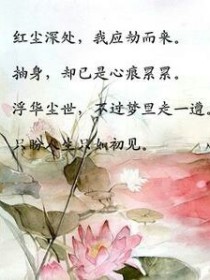 红尘深处，我应劫而来。
抽身，却已是心痕累累。
浮华尘世，不过梦里走一遭。
只盼人生只如初见。